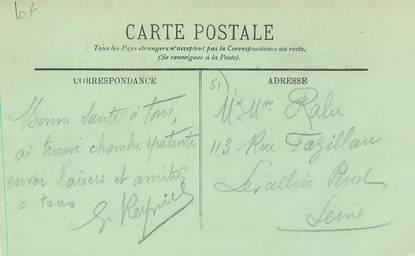 lot
CARTE POSTALE
Tous les Pays étrangers n'acceptent pas la Correspondance au recto.
(Se renseigner à la Poste).
CORRESPONDANCE
Bonne Santé à tous,
ai trouvé chambre épatante
envoi baisers et amitiés
a tous
ADRESSE
51)
Mr Mme Ralu
113 Rue Fazillau
Levallois Perret
Seine